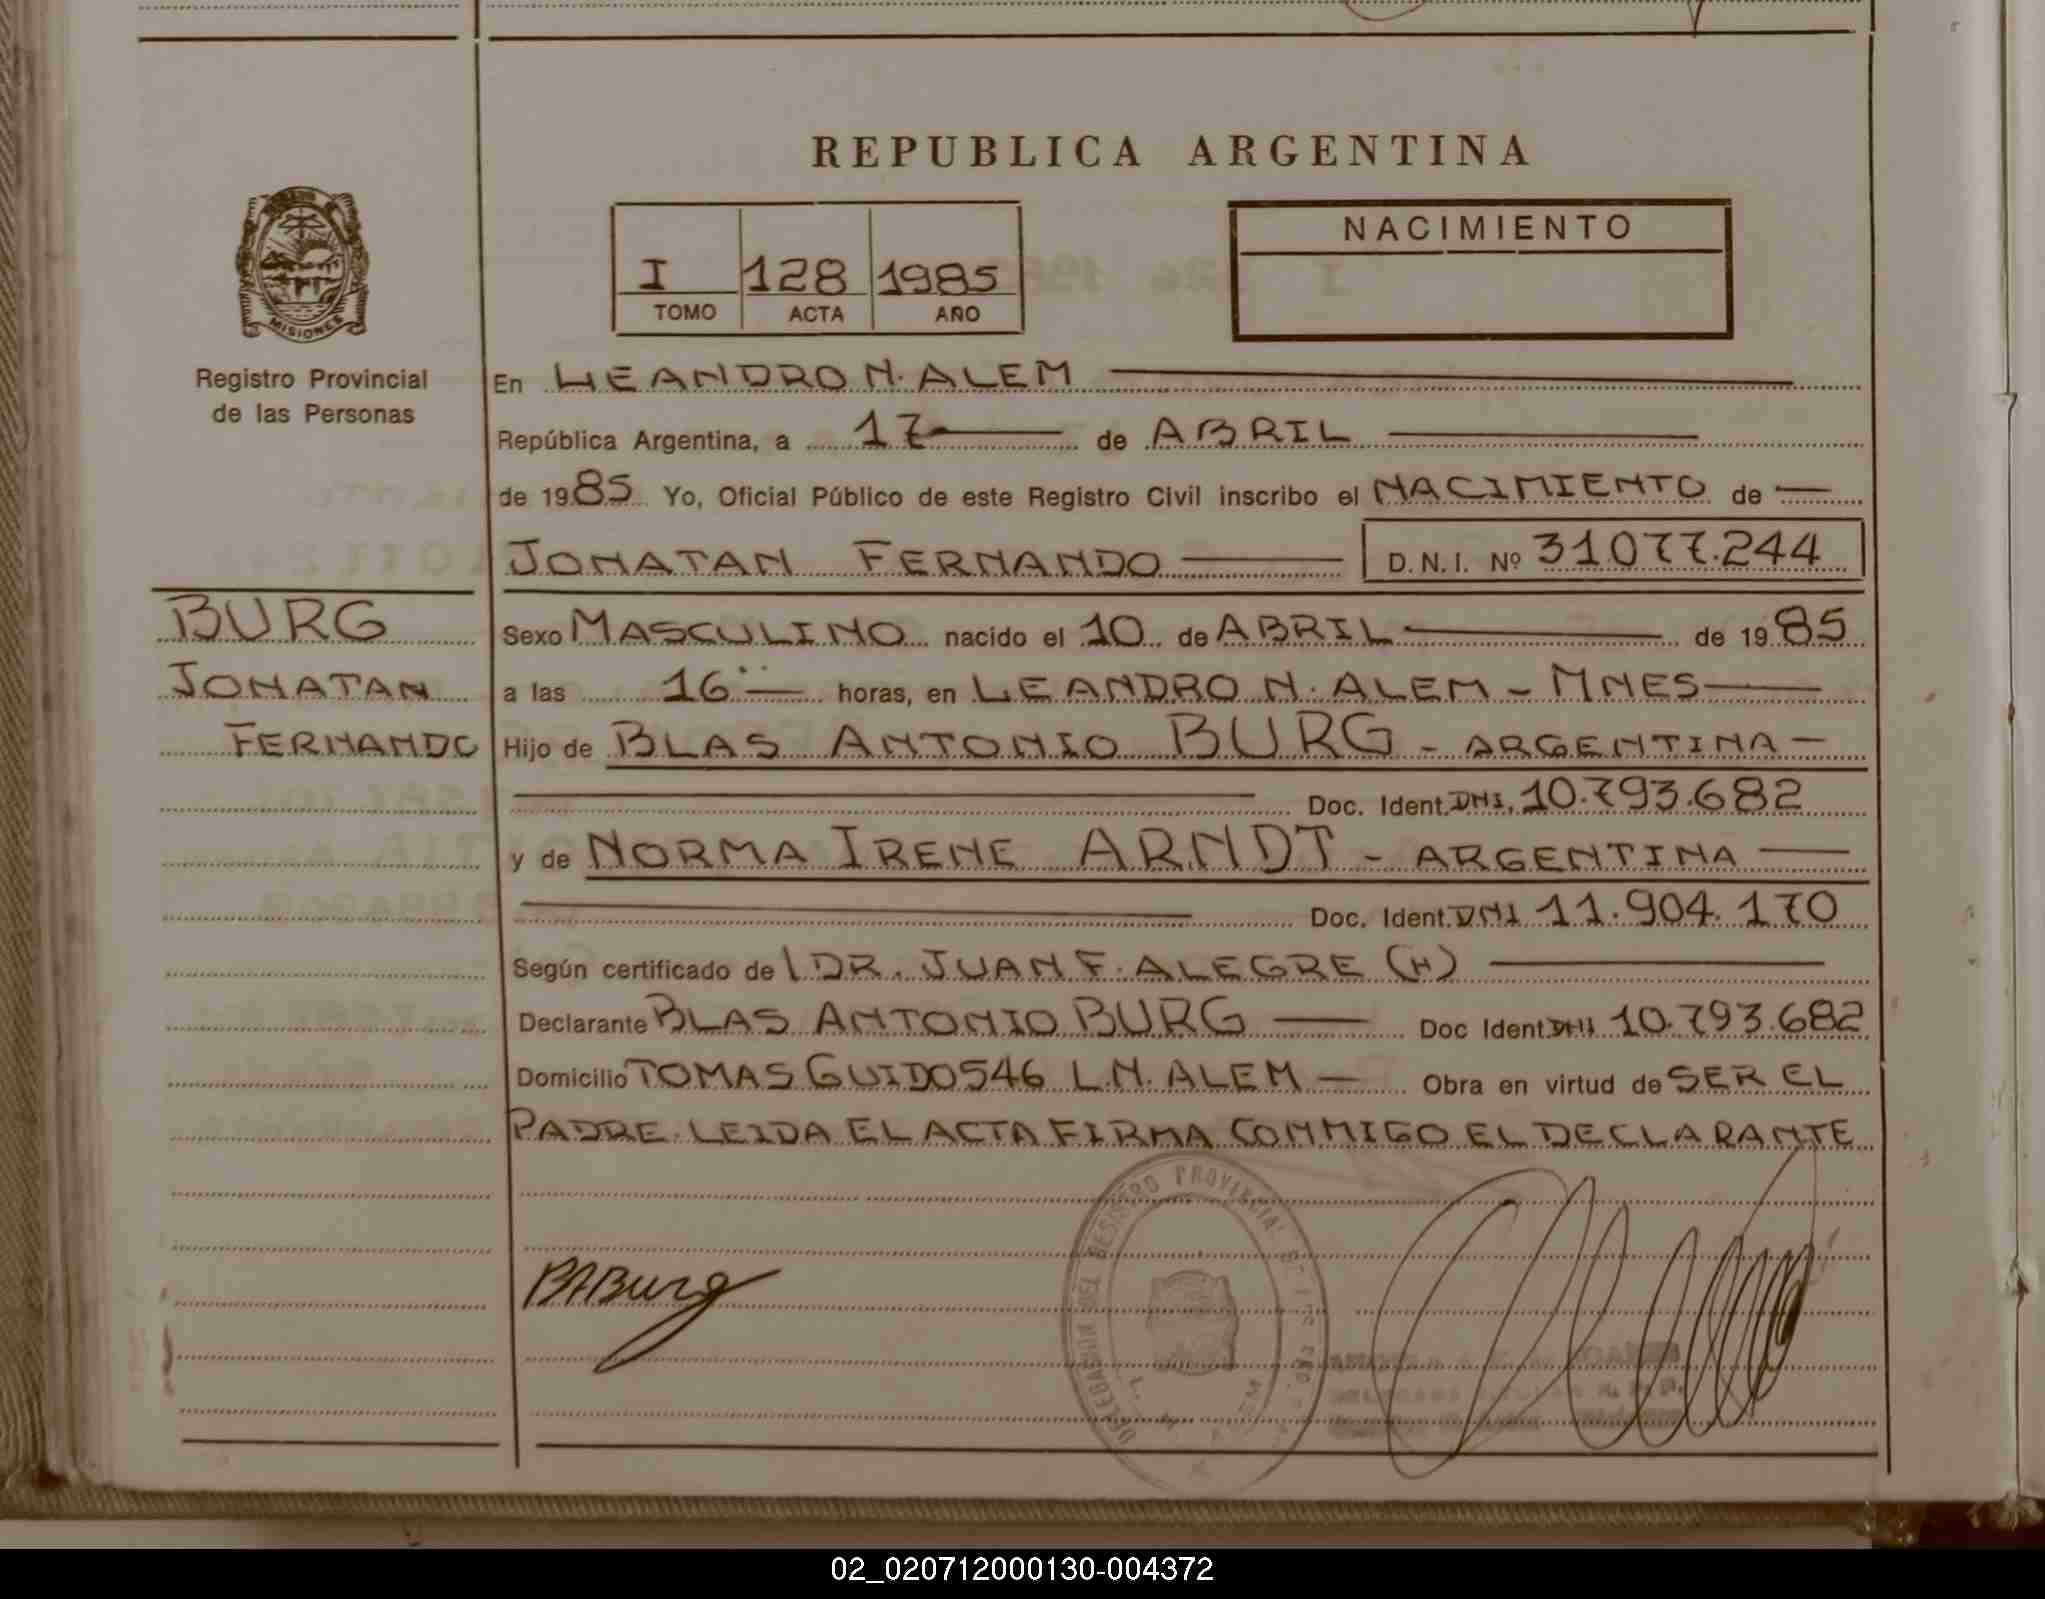 REPUBLICA ARGENTINA
MISIONES
Registro Provincial
de las Personas
I 128 1985
TOMO ACTA AÑO
NACIMIENTO
En LEANDRO N. ALEM
República Argentina, a 17 de ABRIL
de 1985 Yo, Oficial Público de este Registro Civil inscribo el NACIMIENTO de
JONATAN FERNANDO D.N.I. Nº 31077.244
BURG
JONATAN
FERNANDO
Sexo MASCULINO nacido el 10 de ABRIL de 1985
a las 16 horas, en LEANDRO N. ALEM - MNES
Hijo de BLAS ANTONIO BURG - ARGENTINA -
Doc. Ident. DNI. 10.793.682
y de NORMA IRENE ARNDT - ARGENTINA
Doc. Ident. DNI 11.904.170
Según certificado de DR. JUAN F. ALEGRE (H)
Declarante BLAS ANTONIO BURG Doc Ident DNI 10.793.682
Domicilio TOMAS GUIDO 546 L.N. ALEM - Obra en virtud de SER EL
PADRE. LEIDA EL ACTA FIRMA CONMIGO EL DECLARANTE
BABurg
DELEGACION DEL REGISTRO PROVINCIAL
L. N. ALEM
02_020712000130-004372